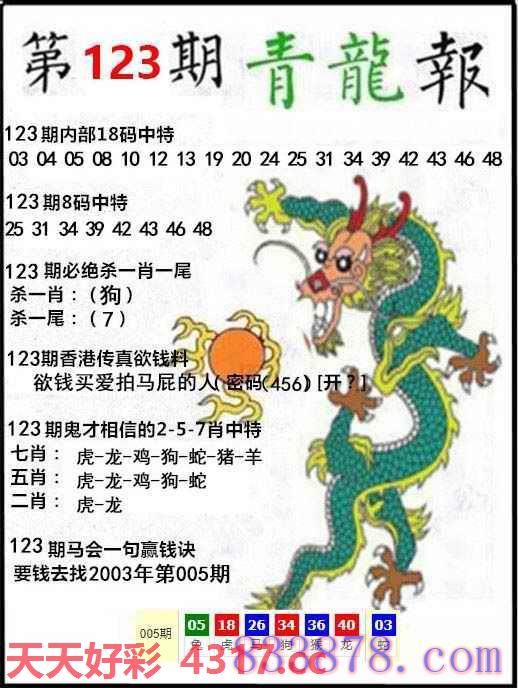 第123期青龍報
123期内部18码中特
03 04 05 08 10 12 13 19 20 24 25 31 34 39 42 43 46 48
123期8码中特
25 31 34 39 42 43 46 48
123期必绝杀一肖一尾
杀一肖：（狗）
杀一尾：（7）
123期香港传真欲钱料
欲钱买爱拍马屁的人(密码(456)[开？]
123期鬼才相信的2-5-7肖中特
七肖： 虎-龙-鸡-狗-蛇-猪-羊
五肖： 虎-龙-鸡-狗-蛇
二肖： 虎-龙
123期马会一句赢钱诀
要钱去找2003年第005期
005期 05 18 26 34 36 40 03
兔 虎 马 狗 猴 龙 蛇
天天好彩 4317.cc
833878.com